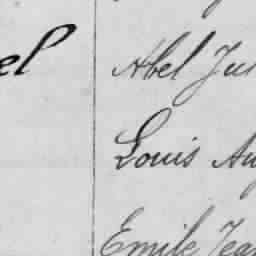 el
Abel Ju
Louis Au
Emile Jea